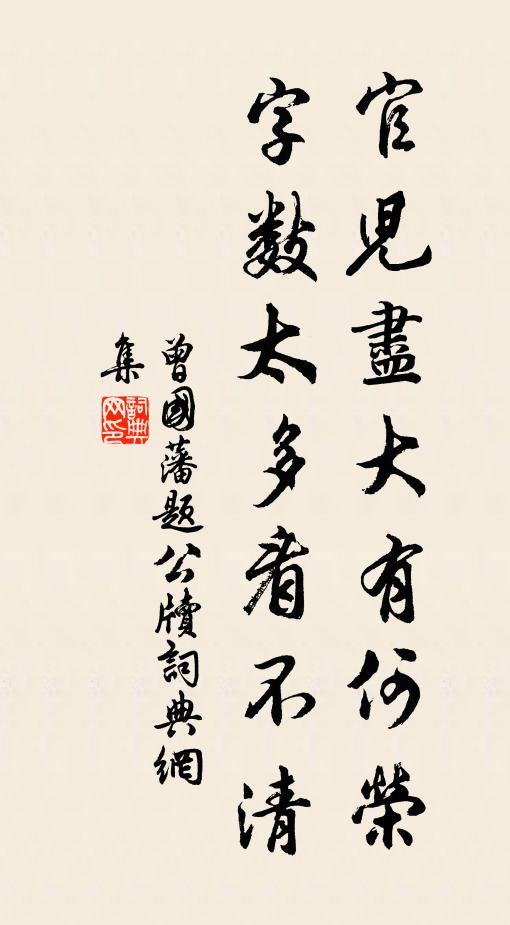 官兒盡大有何榮
字数太多看不清
曾國藩題公牘詞典網
集
詞典
网印